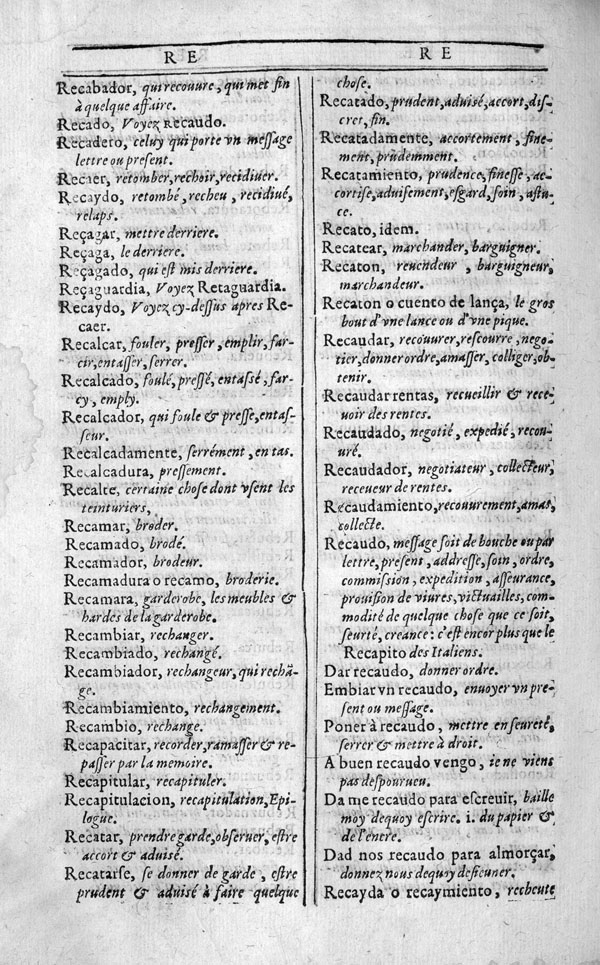 R E
Recabador, qui recouure, qui met fin
à quelque affaire.
Recado, Voyez Recaudo.
Recadero, celuy qui porte vn message
lettre ou present.
Recaer, retomber, rechoir, recidiuer.
Recaydo, retombé, recheu, recidiué,
relaps.
Reçagar, mettre derriere.
Reçaga, le derriere.
Reçagado, qui est mis derriere.
Reçaguardia, Voyez Retaguardia.
Recaydo, Voyez cy-dessus apres Re-
caer.
Recalcar, fouler, presser, emplir, far-
cir, entasser, serrer.
Recalcado, foulé, pressé, entassé, far-
cy, emply.
Recalcador, qui foule & presse, entas-
seur.
Recalcadamente, serrément, en tas.
Recalcadura, pressement.
Recalte, certaine chose dont vsent les
teinturiers,
Recamar, broder.
Recamado, brodé.
Recamador, brodeur.
Recamadura o recamo, broderie.
Recamara, garderobe, les meubles &
hardes de la garderobe.
Recambiar, rechanger.
Recambiado, rechangé.
Recambiador, rechangeur, qui rechã-
ge.
Recambiamiento, rechangement.
Recambio, rechange.
Recapacitar, recorder, ramasser & re-
passer par la memoire.
Recapitular, recapituler.
Recapitulacion, recapitulation, Epi-
logue.
Recatar, prendre garde, obseruer, estre
accort & aduisé.
Recatarse, se donner de garde, estre
prudent & aduisé à faire quelque
R E
chose.
Recatado, prudent, aduisé, accort, dis-
cret, fin.
Recatadamente, accortement, fine-
ment, prudemment.
Recatamiento, prudence, finesse, ac-
cortise, aduisement, esgard, soin, astu-
ce.
Recato, idem.
Recatear, marchander, barguigner.
Recaton, reuendeur, barguigneur,
marchandeur.
Recaton o cuento de lança, le gros
bout d'vne lance ou d'vne pique.
Recaudar, recouurer, rescourre, nego-
tier, donner ordre, amasser, colliger, ob-
tenir.
Recaudar rentas, recueillir & rece-
uoir des rentes.
Recaudado, negotié, expedié, recou-
uré.
Recaudador, negotiateur, collecteur,
receueur de rentes.
Recaudamiento, recouurement, amas,
collecte.
Recaudo, message soit de bouche ou par
lettre, present, addresse, soin, ordre,
commission, expedition, asseurance,
prouision de viures, victuailles, com-
modité de quelque chose que ce soit,
seurté, creance: c'est encor plus que le
Recapito des Italiens.
Dar recaudo, donner ordre.
Embiar vn recaudo, enuoyer vn pre-
sent ou message.
Poner à recaudo, mettre en seureté,
serrer & mettre à droit.
A buen recaudo vengo, ie ne viens
pas despourueu.
Da me recaudo para escreuir, baille
moy dequoy escrire. i. du papier &
de l'encre.
Dad nos recaudo para almorçar,
donnez nous dequoy desieuner.
Recayda o recaymiento, recheute